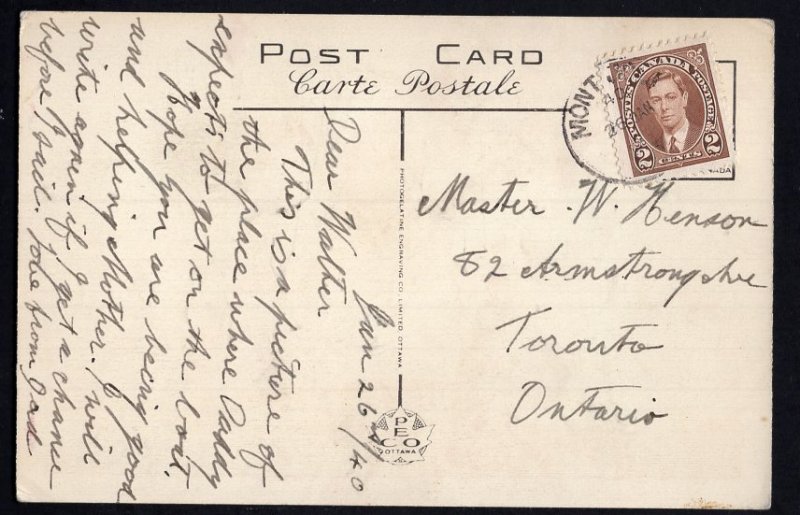 POST CARD
Carte Postale
MONT
POSTES CANADA POSTAGE
2 CENTS 2
Jan 26th/40
Dear Walter
This is a picture of
the place where Daddy
expects to get on the boat.
Hope you are being good
and helping Mother. I will
write again if I get a chance
before I sail. Love from Dad
PHOTOGELATINE ENGRAVING CO. LIMITED, OTTAWA
PECO
OTTAWA
Master W. Henson
82 Armstrong Ave
Toronto
Ontario